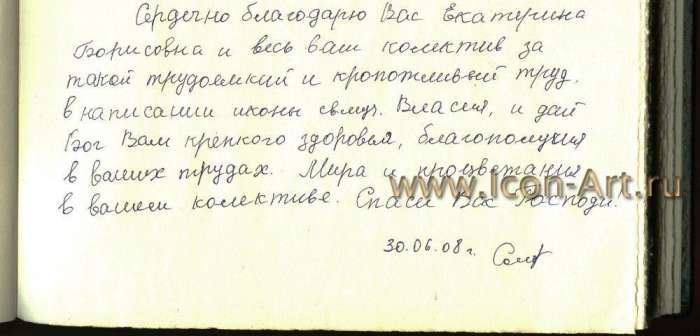 Сердечно благодарю Вас Екатерина
Борисовна и весь ваш колектив за
такой трудоемкий и кропотливый труд.
в написании иконы свмуч. Власия, и дай
Бог Вам крепкого здоровья, благополучия
в ваших трудах. Мира и процветания
www.Icon-Art.ru
в вашем колективе. Спаси Вас Господи.
30.06.08 г.